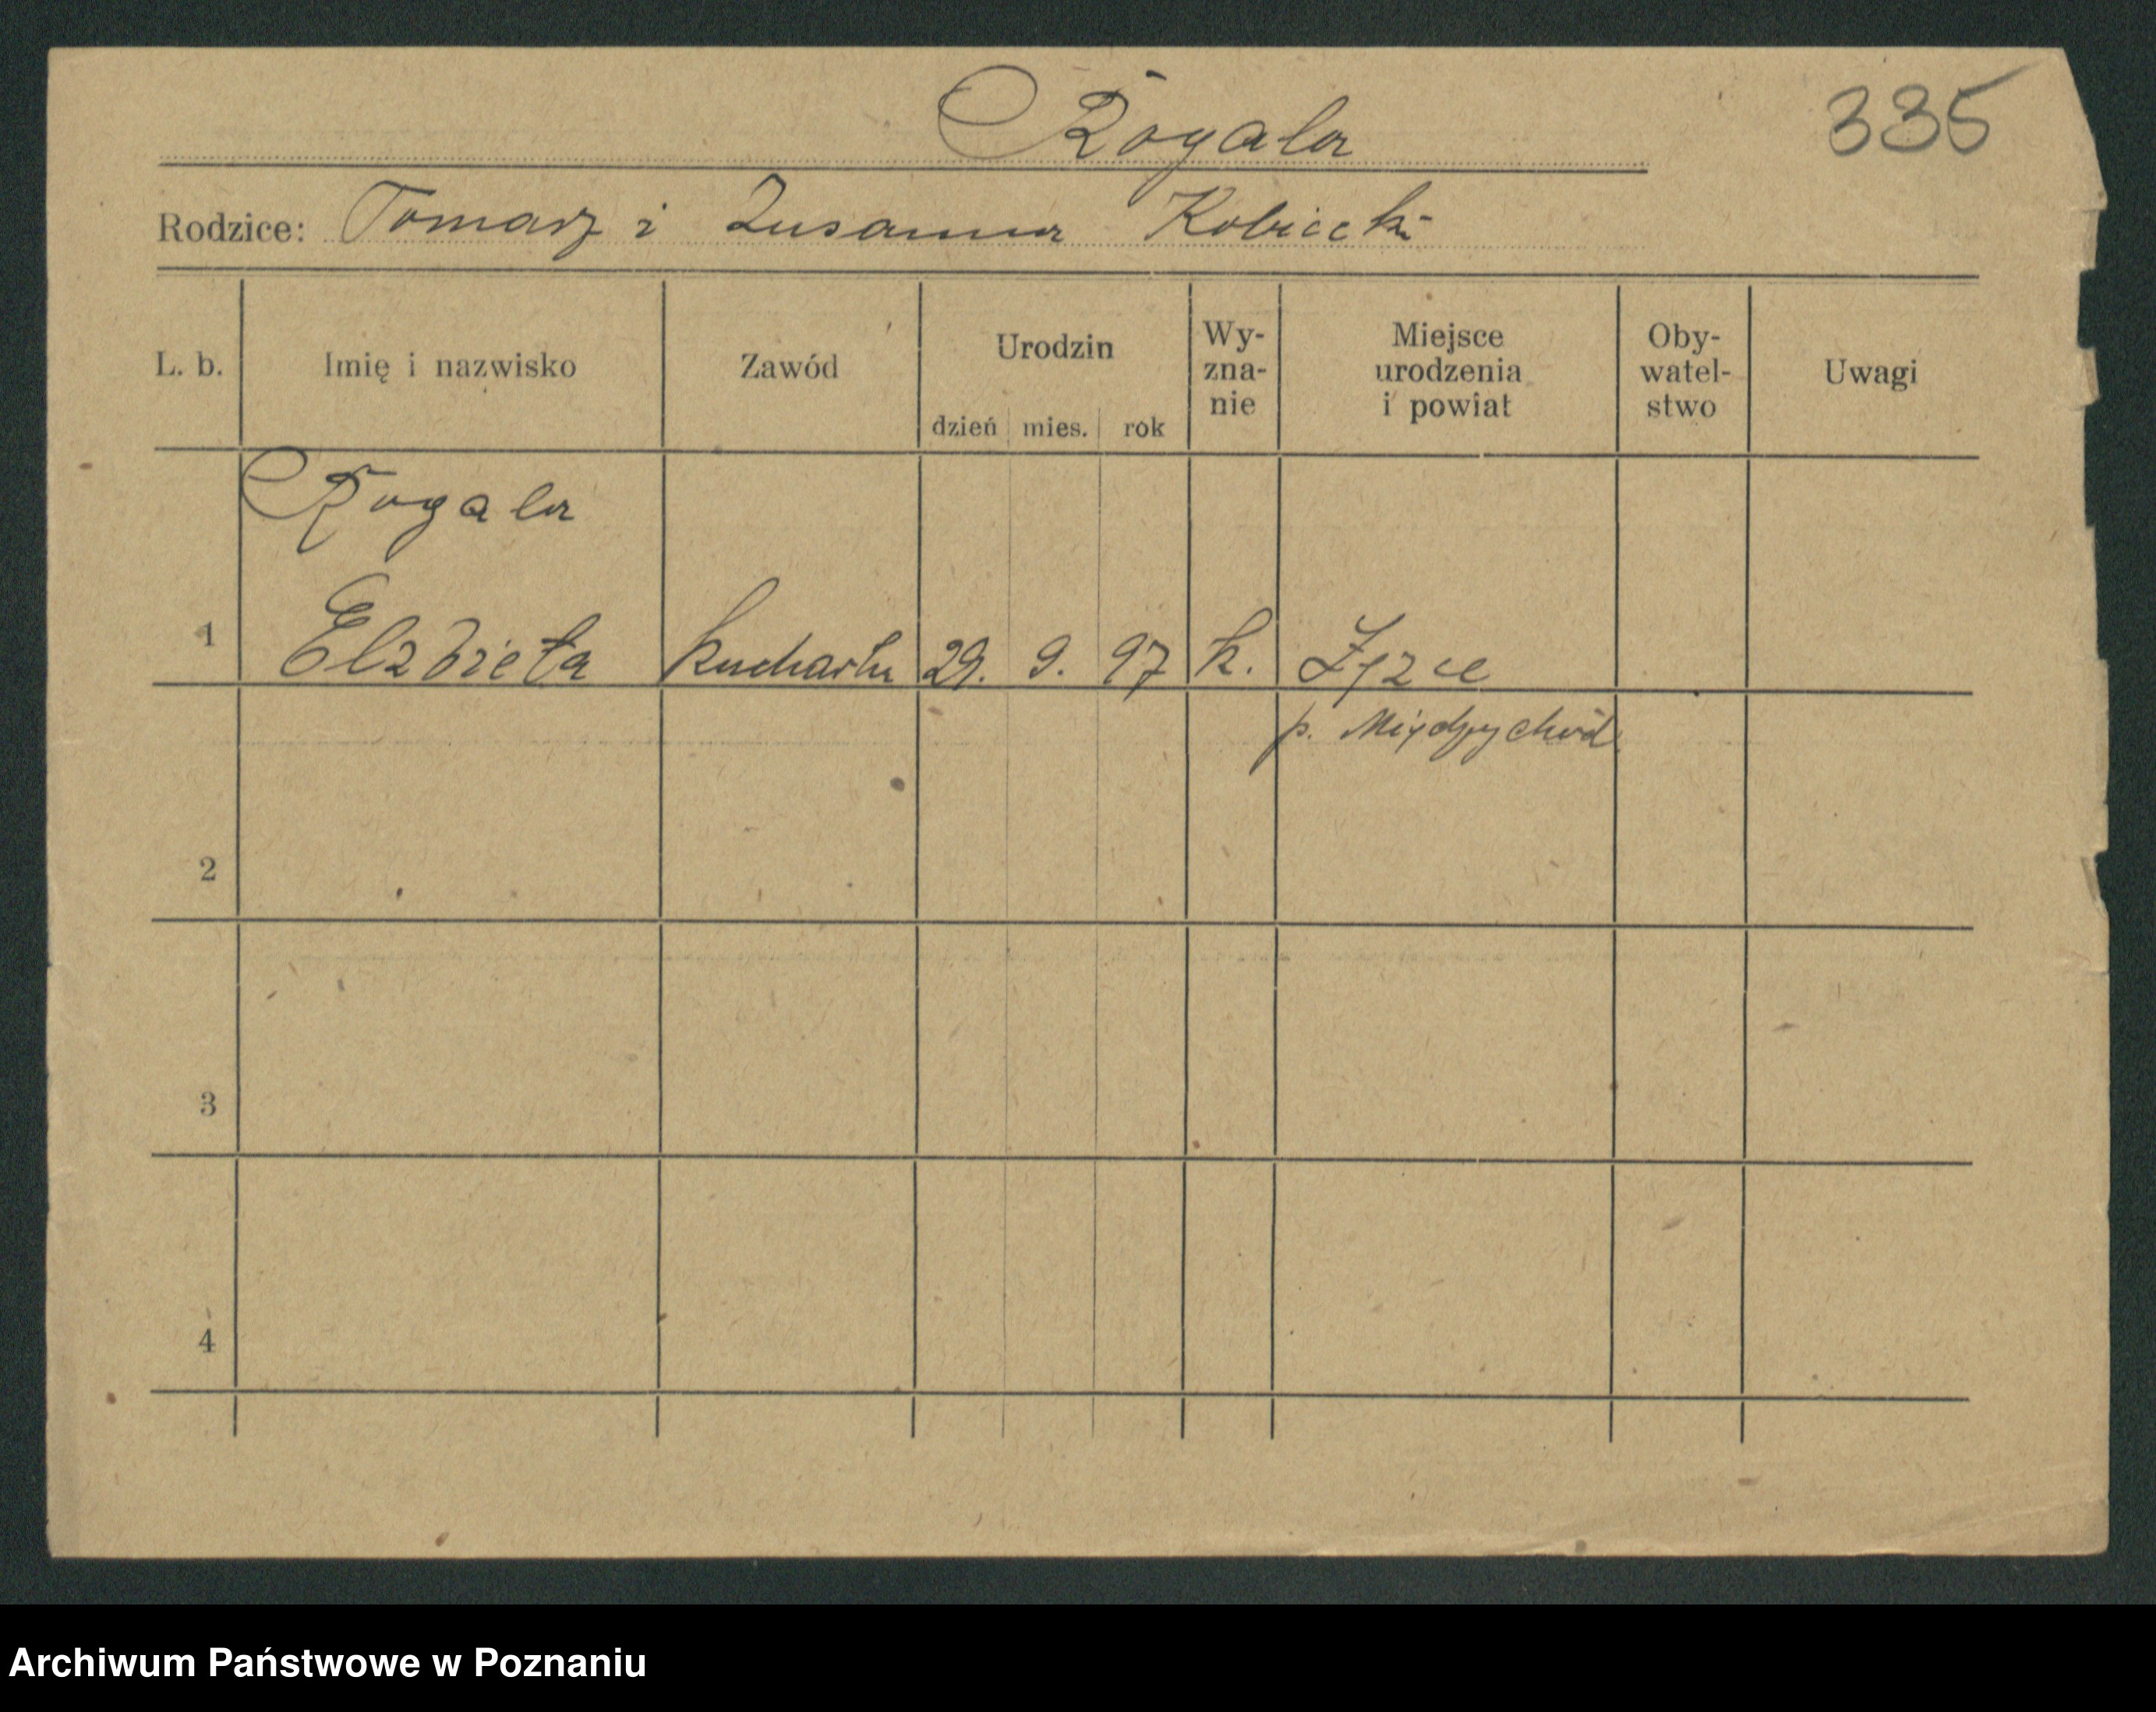 Rogala
335
Rodzice: Tomasz i Zusanna Kobiecki
L. b. Imię i nazwisko Zawód Urodzin dzień mies. rok Wy-zna-nie Miejsce urodzenia i powiat Oby-watel-stwo Uwagi
Rogala
1 Elzbieta kucharka 29. 9. 97 k.
p. Międzychód
2
3
4
Archiwum Państwowe w Poznaniu